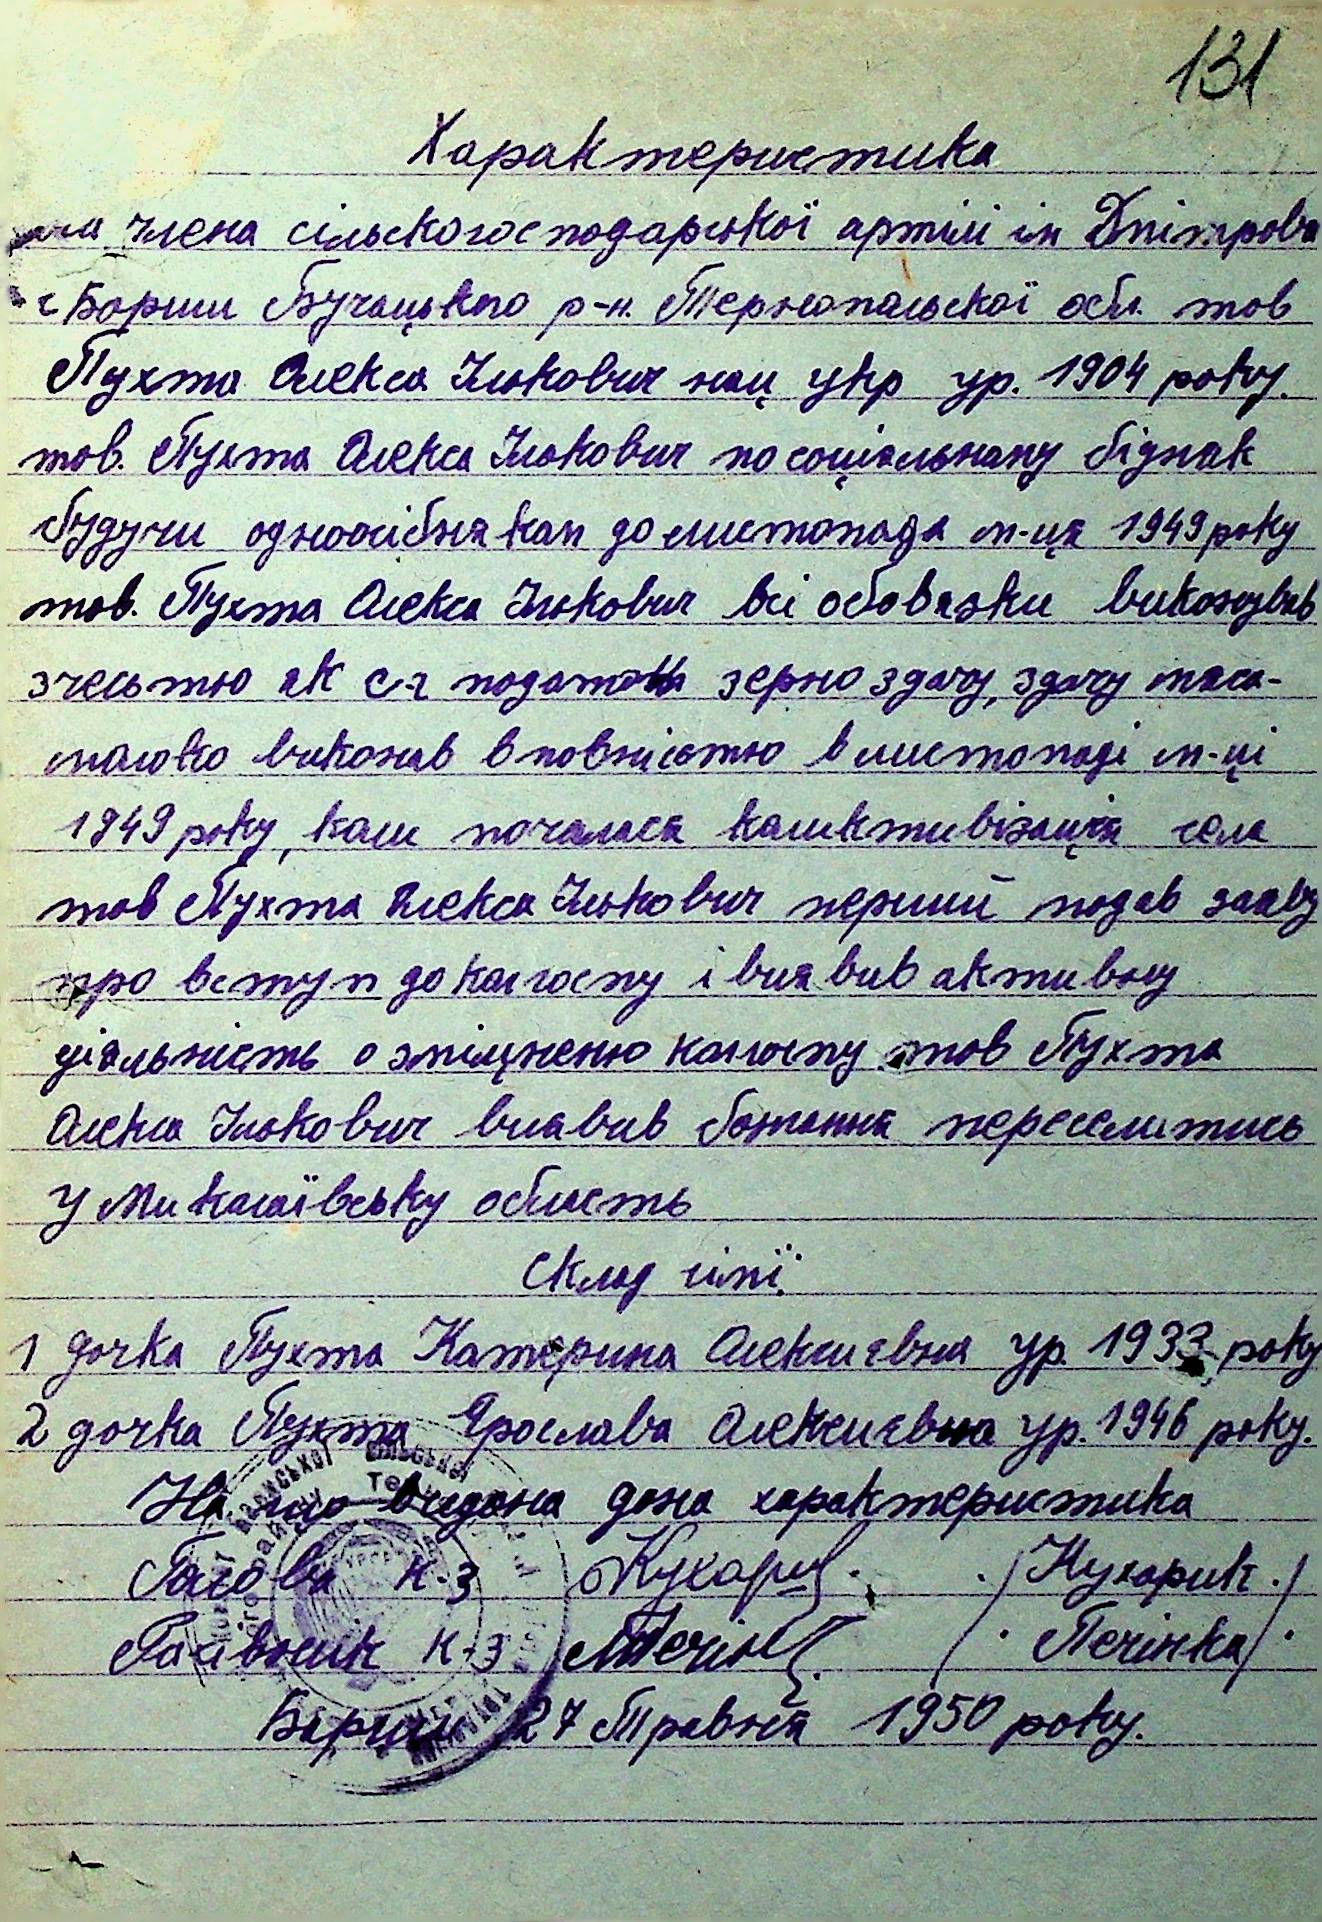 131
Характеристика
на члена сільскогосподарської артілі ім Дмітрова
с Бориш Бучацького р-н. Тернопольської обл. тов
Пухта Олекса Ількович нац укр ур. 1904 року.
тов. Пухта Олекса Ількович по соціяльному бідняк
будучи одноосібняком до листопада м-ця 1949 року
тов. Пухта Олекса Ількович всі обовязки виконував
з честью як с-г податок зерноздачу, здачу мяса-
молоко виконав вповністю в листопаді м-ці
1949 року, коли почалася коликтивізація села
тов Пухта Олекса Ількович перший подав заяву
про вступ до колгоспу і виявив активну
діяльність о зміцненю колгоспу тов Пухта
Олекса Ількович виявив бажання переселитись
у Миколаївську область
Склад сімї.
1 дочка Пухта Катерина Олексиєвна ур. 1933 року
2 дочка Пухта Ярослава Олексиєвна ур. 1946 року.
На що видана дана характеристика
Голова к-з Кухарик. /Кухарик./
Голівник к-з Печінка /Печінка/.
Бориш 27 Травня 1950 року.